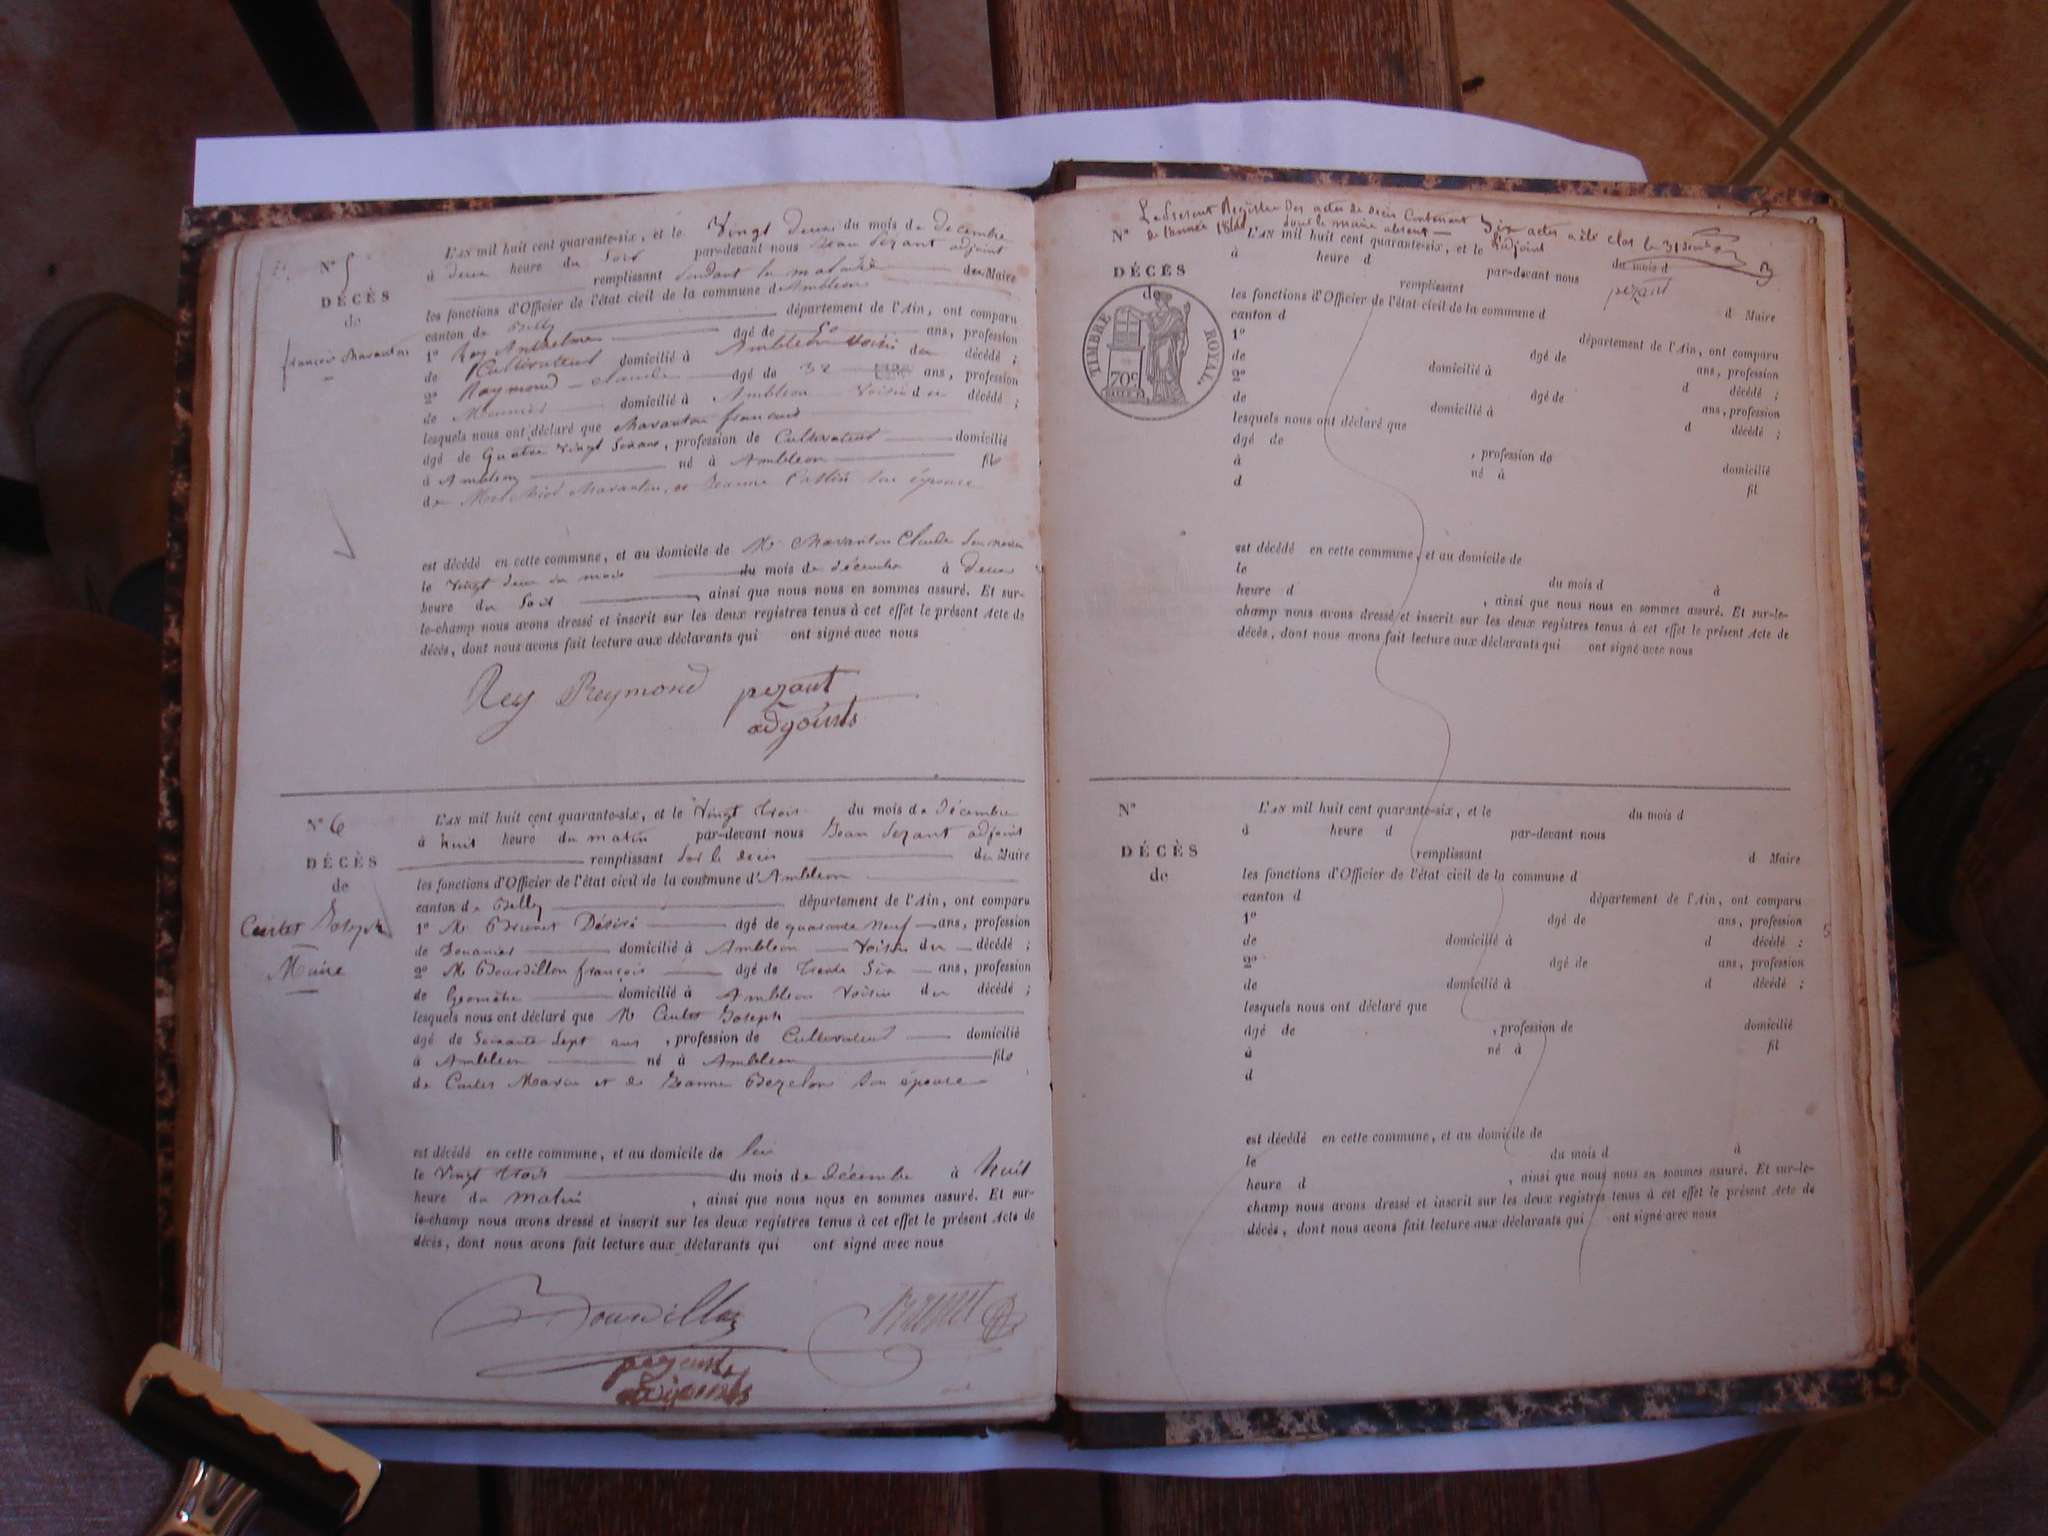 N° 5
DÉCÈS
de
françois Mavanton
L'AN mil huit cent quarante-six, et le Vingt deux du mois de Décembre
à deux heure du Soir par-devant nous Jean Pezant adjoint
remplissant pendant la maladie du Maire
les fonctions d'Officier de l'état civil de la commune d'Ambléon
canton de Belley département de l'Ain, ont comparu
1° Rey Anthelme âgé de 50 ans, profession
de Cultivateur domicilié à Ambléon voisin du décédé ;
2° Raymond Claude âgé de 32 ans, profession
de Meunier domicilié à Ambléon Voisin du décédé ;
lesquels nous ont déclaré que Mavanton françois
âgé de Quatre Vingt ans, profession de Cultivateur domicilié
à Ambléon né à Ambléon fils
de Mavanton, et Jeanne son épouse
est décédé en cette commune, et au domicile de Mr Mavanton Claude Son
le vingt deux du mois du mois de décembre à deux
heure du Soir , ainsi que nous nous en sommes assuré. Et sur-
le-champ nous avons dressé et inscrit sur les deux registres tenus à cet effet le présent Acte de
décès, dont nous avons fait lecture aux déclarants qui ont signé avec nous
Rey Reymond pezant
adjoints
N° 6
DÉCÈS
de
Carlet Joseph
Maire
L'AN mil huit cent quarante-six, et le Vingt trois du mois de Décembre
à huit heure du matin par-devant nous Jean Pezant adjoint
remplissant Par le décès du Maire
les fonctions d'Officier de l'état civil de la commune d'Ambléon
canton de Belley département de l'Ain, ont comparu
1° Mr Brunet Désiré âgé de quarante neuf ans, profession
de Douanier domicilié à Ambléon Voisin du décédé ;
2° Mr Bourdillon françois âgé de trente Six ans, profession
de Géomètre domicilié à Ambléon Voisin du décédé ;
lesquels nous ont déclaré que Mr Carlet Joseph
âgé de Soixante Sept ans , profession de Cultivateur domicilié
à Ambléon né à Ambléon fils
de Carlet Marin et de Jeanne son épouse
est décédé en cette commune, et au domicile de lui
le Vingt trois du mois de décembre à huit
heure du Matin , ainsi que nous nous en sommes assuré. Et sur-
le-champ nous avons dressé et inscrit sur les deux registres tenus à cet effet le présent Acte de
décès, dont nous avons fait lecture aux déclarants qui ont signé avec nous
Bourdillon Brunet
pezant
adjoints
Le Présent Registre Des actes de décès Contenant Six actes a été clos le 31
de l'année 1846 pour le maire absent l'adjoint
pezant
N°
DÉCÈS
de
TIMBRE ROYAL.
70c
L'AN mil huit cent quarante-six, et le du mois d
à heure d par-devant nous
remplissant d Maire
les fonctions d'Officier de l'état civil de la commune d
canton d département de l'Ain, ont comparu
1° âgé de ans, profession
de domicilié à d décédé ;
2° âgé de ans, profession
de domicilié à d décédé ;
lesquels nous ont déclaré que
âgé de , profession de domicilié
à né à fil
d
est décédé en cette commune, et au domicile de
le du mois d à
heure d , ainsi que nous nous en sommes assuré. Et sur-le-
champ nous avons dressé et inscrit sur les deux registres tenus à cet effet le présent Acte de
décès, dont nous avons fait lecture aux déclarants qui ont signé avec nous
N°
DÉCÈS
de
L'AN mil huit cent quarante-six, et le du mois d
à heure d par-devant nous
remplissant d Maire
les fonctions d'Officier de l'état civil de la commune d
canton d département de l'Ain, ont comparu
1° âgé de ans, profession
de domicilié à d décédé ;
2° âgé de ans, profession
de domicilié à d décédé ;
lesquels nous ont déclaré que
âgé de , profession de domicilié
à né à fil
d
est décédé en cette commune, et au domicile de
le du mois d à
heure d , ainsi que nous nous en sommes assuré. Et sur-le-
champ nous avons dressé et inscrit sur les deux registres tenus à cet effet le présent Acte de
décès, dont nous avons fait lecture aux déclarants qui ont signé avec nous